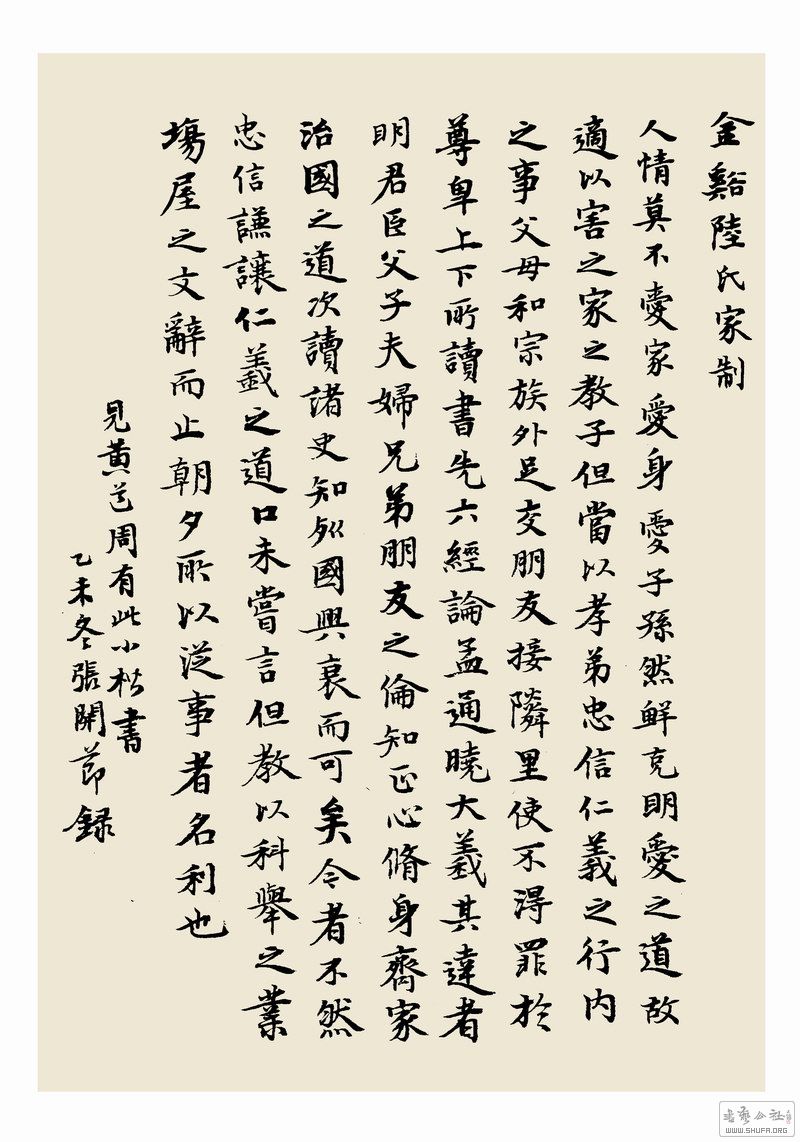 金谿陸氏家制
人情莫不愛家愛身愛子孫然鮮克明愛之道故
適以害之家之教子但當以孝弟忠信仁義之行内
之事父母和宗族外足交朋友接隣里使不得罪於
尊卑上下所讀書先六經論孟通曉大義其達者
明君臣父子夫婦兄弟朋友之倫知正心脩身齊家
治國之道次讀諸史知國興衰而可矣今者不然
忠信謙讓仁義之道口未嘗言但教以科舉之業
塲屋之文辭而止朝夕所以從事者名利也
見黃道周有此小楷書
乙未冬張開節録
書藝公社
WWW.SHUFA.ORG